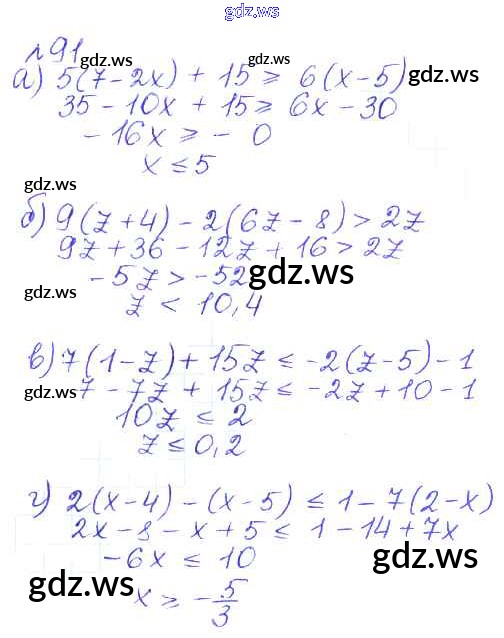 gdz.ws
№91
gdz.ws gdz.ws
а) 5(7-2x) + 15 ≥ 6(x-5)
35 - 10x + 15 ≥ 6x - 30
gdz.ws
-16x ≥ - 0
x ≤ 5
gdz.ws
б) 9(z+4) - 2(6z-8) > 2z
9z + 36 - 12z + 16 > 2z
-5z > -52
gdz.ws
gdz.ws
z < 10,4
в) 7(1-z) + 15z ≤ -2(z-5) - 1
7 - 7z + 15z ≤ -2z + 10 - 1
gdz.ws gdz.ws
10z ≤ 2
z ≤ 0,2
г) 2(x-4) - (x-5) ≤ 1 - 7(2-x)
2x - 8 - x + 5 ≤ 1 - 14 + 7x
-6x ≤ 10
gdz.ws
gdz.ws
x ≥ - 5/3